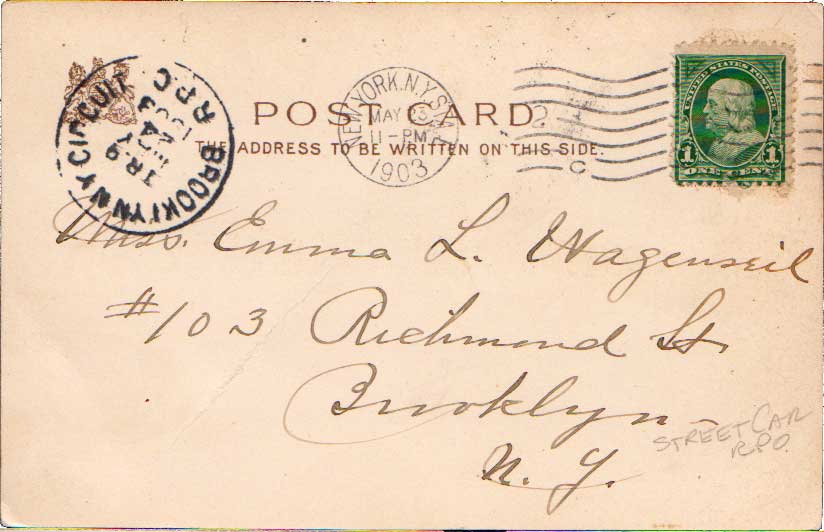 BROOKLYN N Y CIRCUIT
TR 9
MAY
1903
R.P.O.
NEW YORK, N.Y. STA.
MAY 23
11-PM
1903
2
C
UNITED STATES POSTAGE
1 1
ONE CENT
POST CARD
THE ADDRESS TO BE WRITTEN ON THIS SIDE.
Miss. Emma L. Wagenseil
#103 Richmond St.
Brooklyn
N. Y.
STREET CAR
RPO.